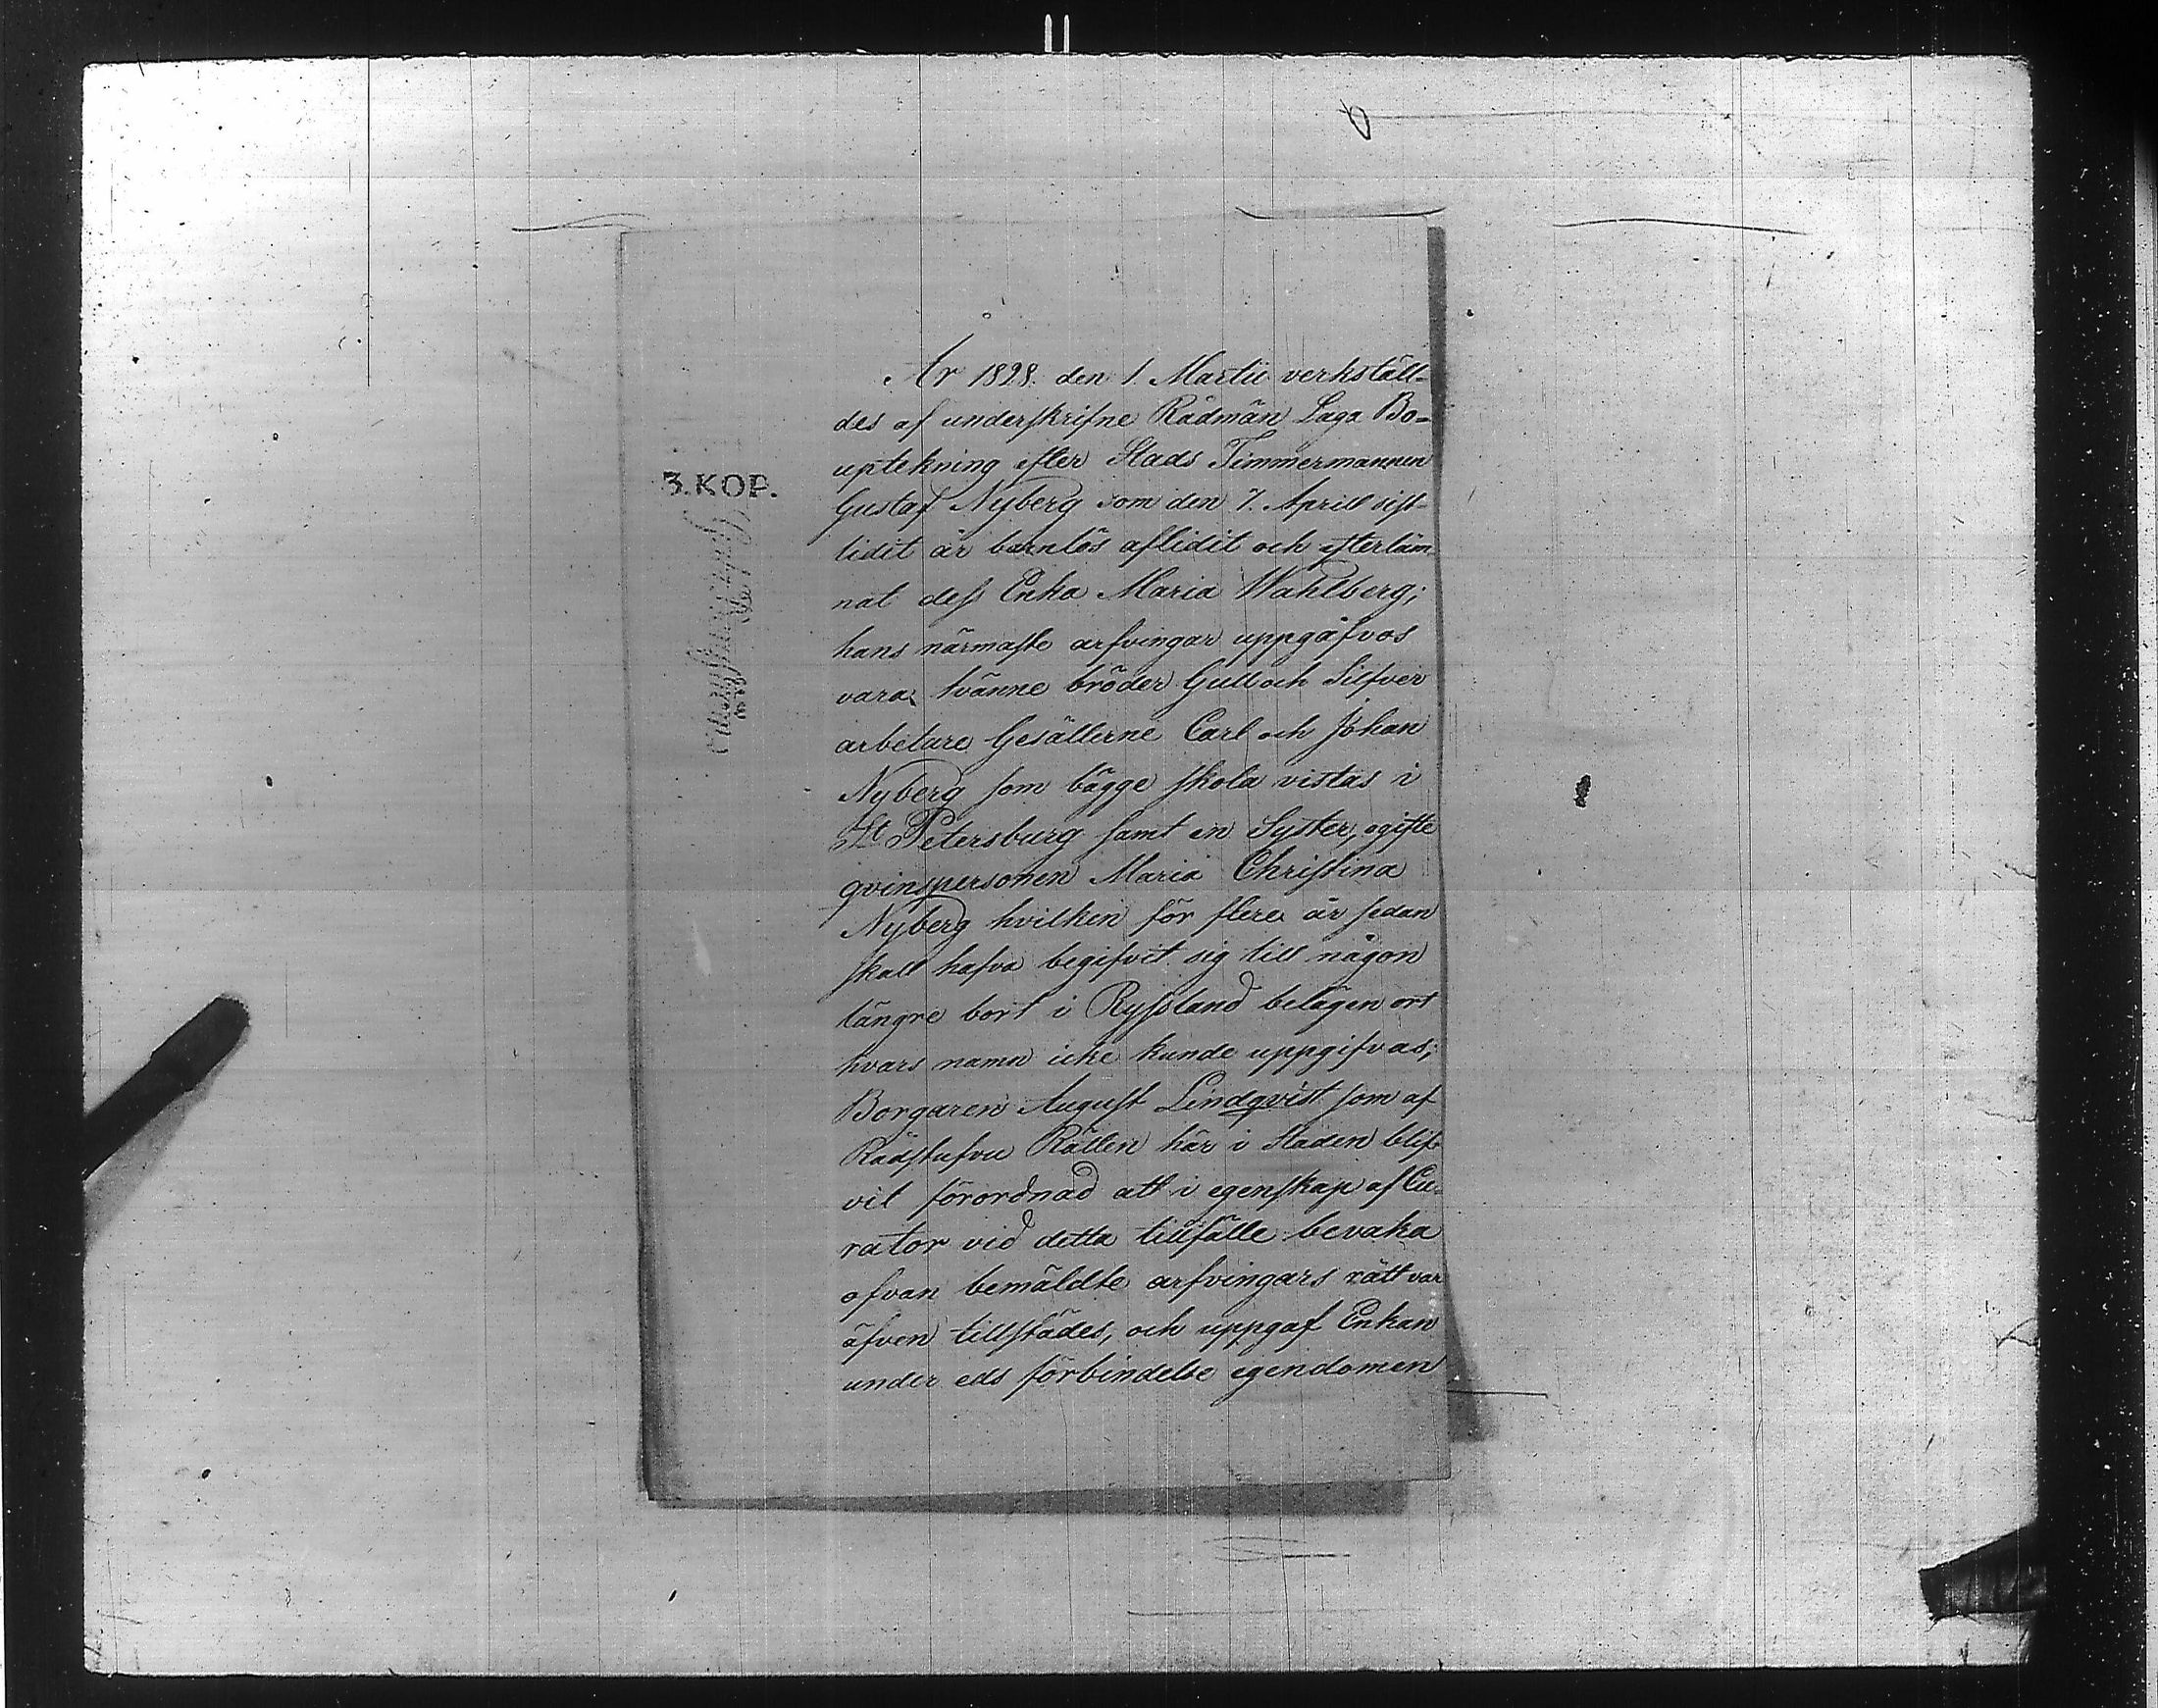 År 1828. den 1. Martii verkställ-
des af underskrifne Rådmän Laga Bo-
uptekning efter Stads Timmermannen
Gustaf Nyberg som den 7. Aprill sist-
lidit år barnlös aflidit och efterläm-
nat dess Enka Maria Wahlberg;
hans närmaste arfvingar uppgåfvos
vara, tvänne bröder Gull och Silfver
arbetare Gesällerne Carl och Johan
Nyberg som bägge skola vistas i
St Petersburg samt en Syster, ogifte
qvinspersonen Maria Christina
Nyberg hvilken för flere år sedan
skall hafva begifvit sig till någon
längre bort i Ryssland belägen ort
hvars namn icke kunde uppgifvas;
Borgaren August Lindqvist som af
Rådstufvu Rätten här i Staden blif-
vit förordnad att i egenskap af Cu-
rator vid detta tillfälle bevaka
ofvan bemäldte arfvingars rätt var
äfven tillstädes, och uppgaf Enkan
under eds förbindelse egendomen
3. KOP.